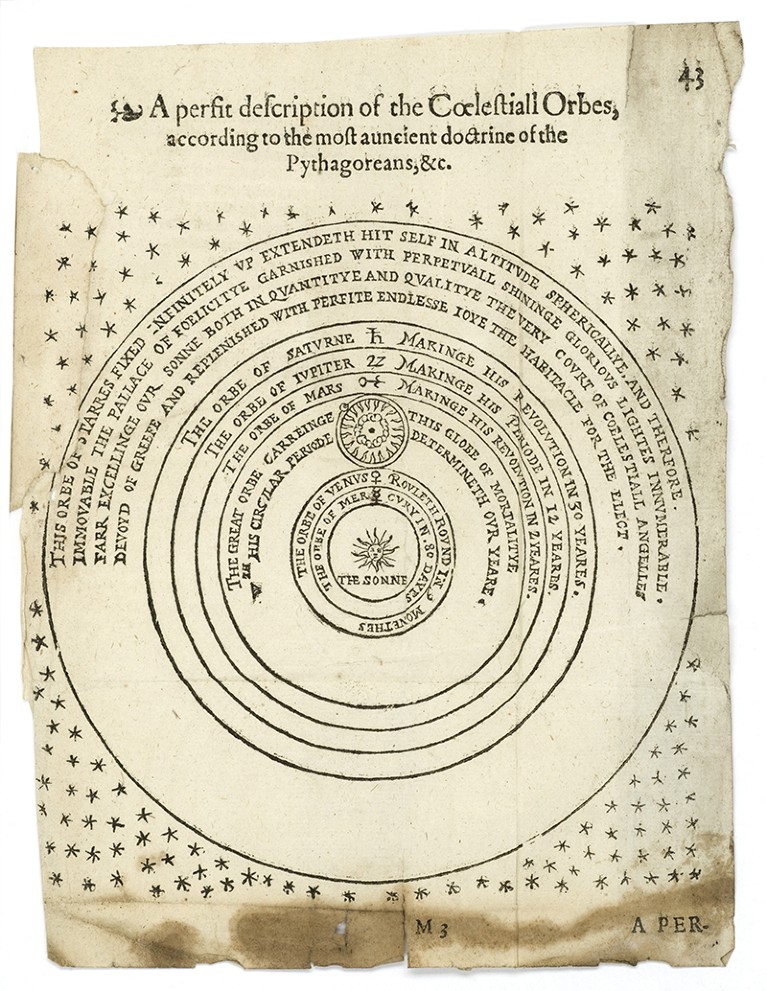 43
A perfit deſcription of the Cœleſtiall Orbes,
according to the moſt auncient doctrine of the
Pythagoreans,&c.
THIS ORBE OF STARRES FIXED INFINITELY VP EXTENDETH HIT SELF IN ALTITVDE SPHERICALLYE, AND THERFORE.
IMMOVABLE THE PALLACE OF FOELICITYE GARNISHED WITH PERPETVALL SHININGE GLORIOVS LIGHTES INNVMERABLE.
FARR EXCELLINGE OVR SONNE BOTH IN QVANTITYE AND QVALITYE THE VERY COVRT OF COELESTIALL ANGELLES
DEVOYD OF GREEFE AND REPLENISHED WITH PERFITE ENDLESSE IOYE THE HABITACLE FOR THE ELECT.
THE ORBE OF SATVRNE ♄ MAKINGE HIS REVOLVTION IN 30 YEARES.
THE ORBE OF IVPITER ♃ MAKINGE HIS PERIODE IN 12 YEARES.
THE ORBE OF MARS ♂ MAKINGE HIS REVOLVTION IN 2 YEARES.
THE GREAT ORBE CARREINGE THIS GLOBE OF MORTALITYE
HIS CIRCVLAR PERIODE DETERMINETH OVR YEARE.
THE ORBE OF VENVS ♀ ROVLETH ROVND IN 9 MONETHES
THE ORBE OF MERCVRY IN 80 DAYES
THE SONNE
M 3 A PER-